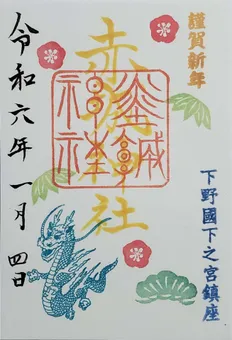 謹賀新年
下野國下之宮鎮座
赤 神社
令和六年一月四日